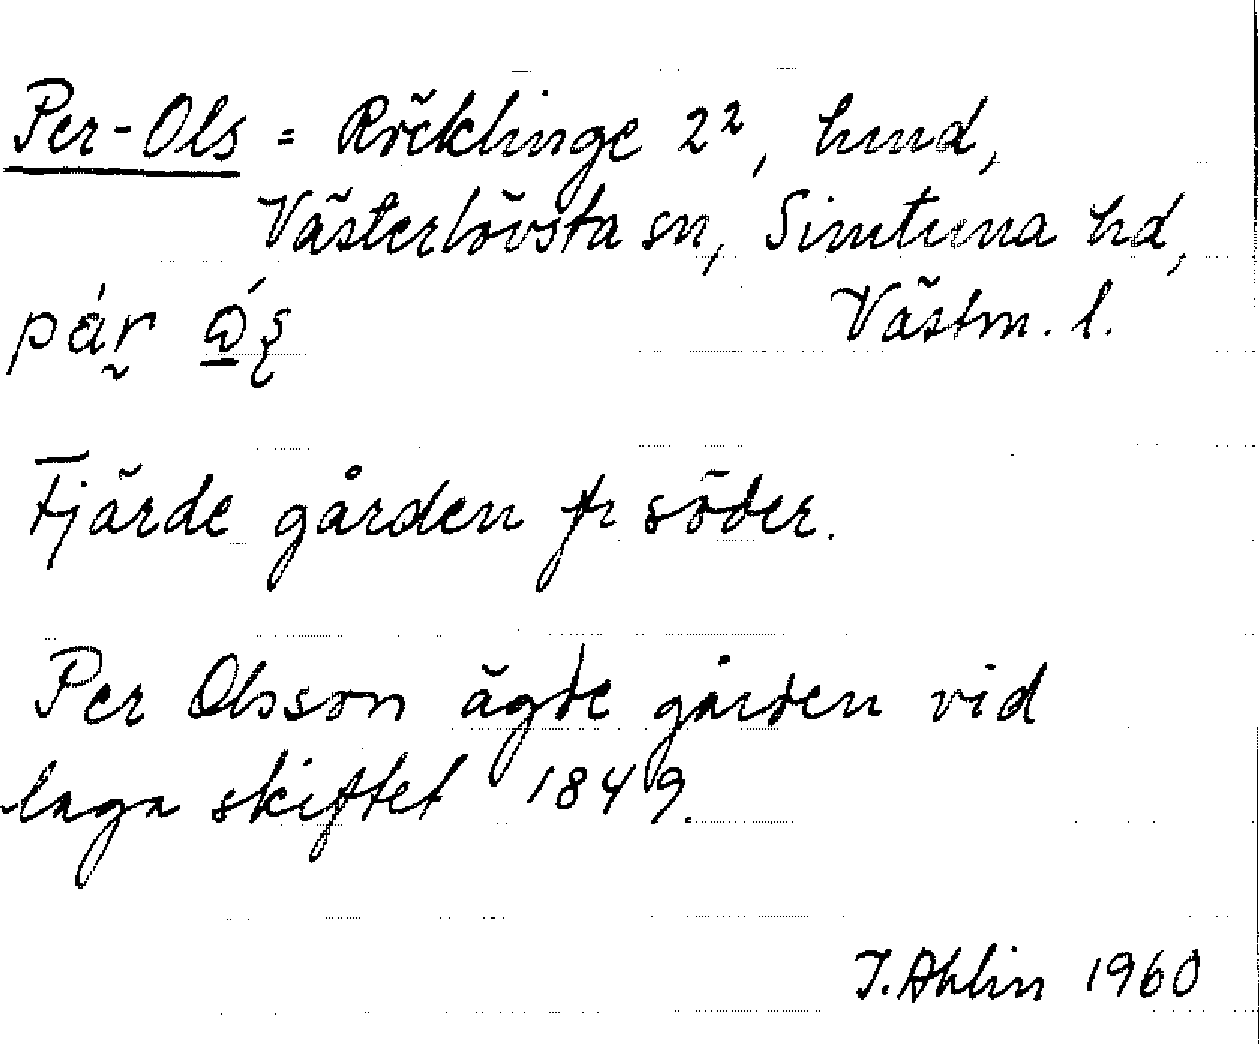 Per-Ols = Röcklinge 2², hmd,
Västerlövsta sn, Simtuna hd,
Västm. l.
Fjärde gården fr söder.
Per Olsson ägde gården vid
laga skiftet 1849.
J. Ahlin 1960